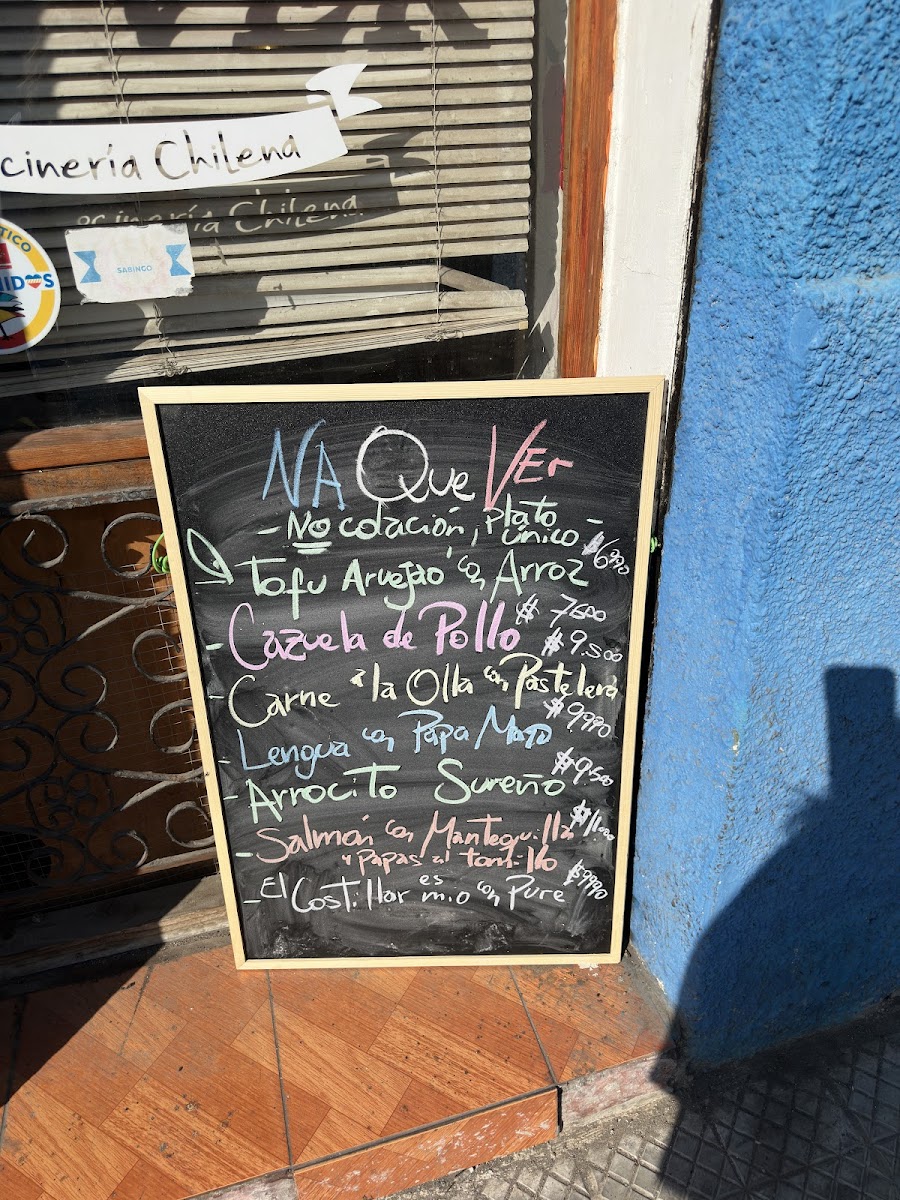 cinería Chilena
ocinería Chilena
TICO
NIDOS
SABINGO
NA Que VEr
- No colación, Plato único -
- Tofu Arvejao con Arroz $6990
- Cazuela de Pollo $7600
- Carne a la Olla con Pastelera $9.500
- Lengua con Papa Mayo $9990
- Arrocito Sureño $9.500
- Salmón con Mantequilla
y papas al tomillo
- El Costillar es mio con Pure $9990